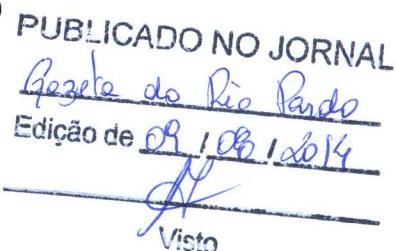 PUBLICADO NO JORNAL
Gazeta do Rio Pardo
Edição de 09 / 08 / 2014
Visto